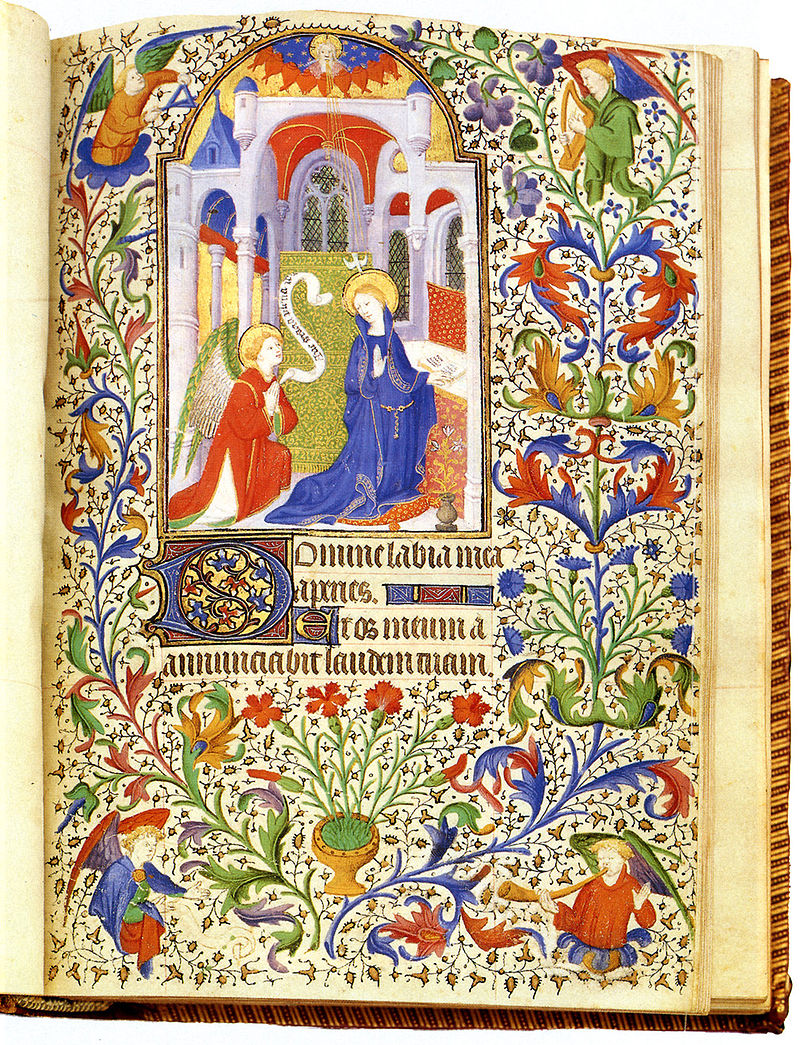 Aue gracia plena d
Domine labia mea
aperies.
Et os meum a
annunciabit laudem tuam